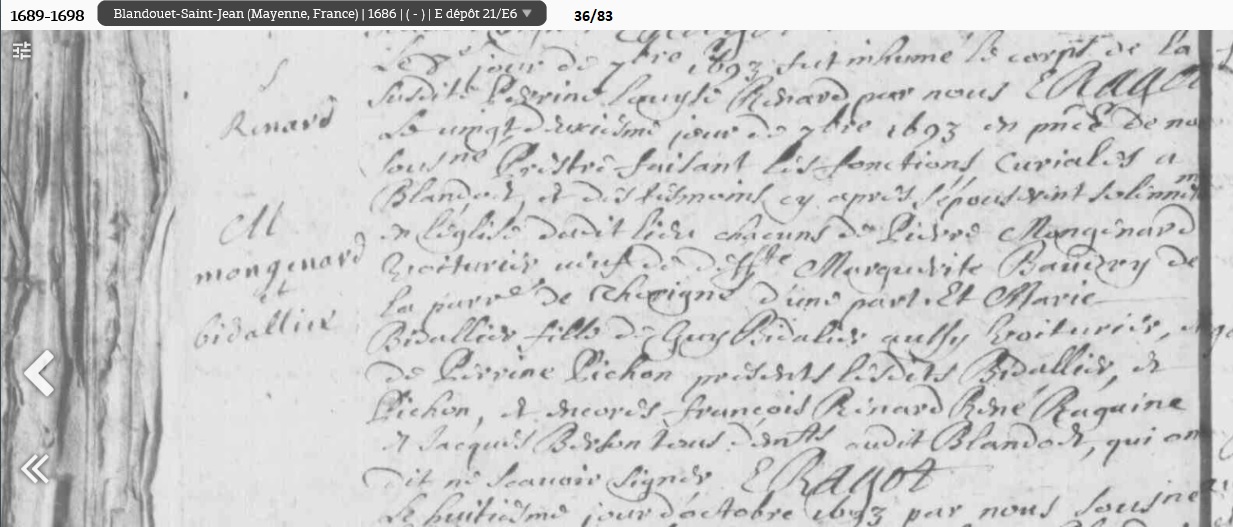 1689-1698 Blandouet-Saint-Jean (Mayenne, France) | 1686 | ( - ) | E dépôt 21/E6 36/83
Le 8e jour de 7bre 1693 fut inhumé le corps de la
susdite Perrine Louyse Renard par nous ERagot
Renard
Le vingt deuxiesme jour de 7bre 1693 en pnce de no
sousne Prestre faisant les fonctions Curiales a
Blandoet, et des tesmoins cy apres s'épouserent solemnem
M
mongenard
et
bidallier
en l'église dudit lieu chacuns de Pierre Mongenard
Voiturier veuf de deffte Marguerite Baudry de
la parre de Chevigné d'une part. Et Marie
Bidallier fille de Guy Bidalier aussy voiturier, et
de Perrine Pichon presents lesdits Bidallier, et
Pichon, et encores françois Renard René Ragaine
et Jacques Besson tous demts audit Blandoet, qui on
dit ne scavoir signer ERagot
Le huitiesme jour d'octobre 1693 par nous sousine